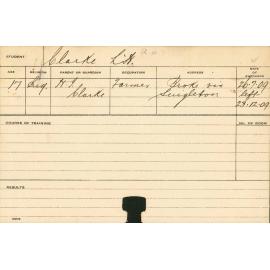 STUDENT Clarke L.N.
AGE RELIGION PARENT OR GUARDIAN OCCUPATION ADDRESS DATE OF ENTRANCE
17 Eng. H. J. Farmer Broke via 26-7-09
Clarke Singleton left
23-12-09
COURSE OF TRAINING NO. OF ROOM
RESULTS